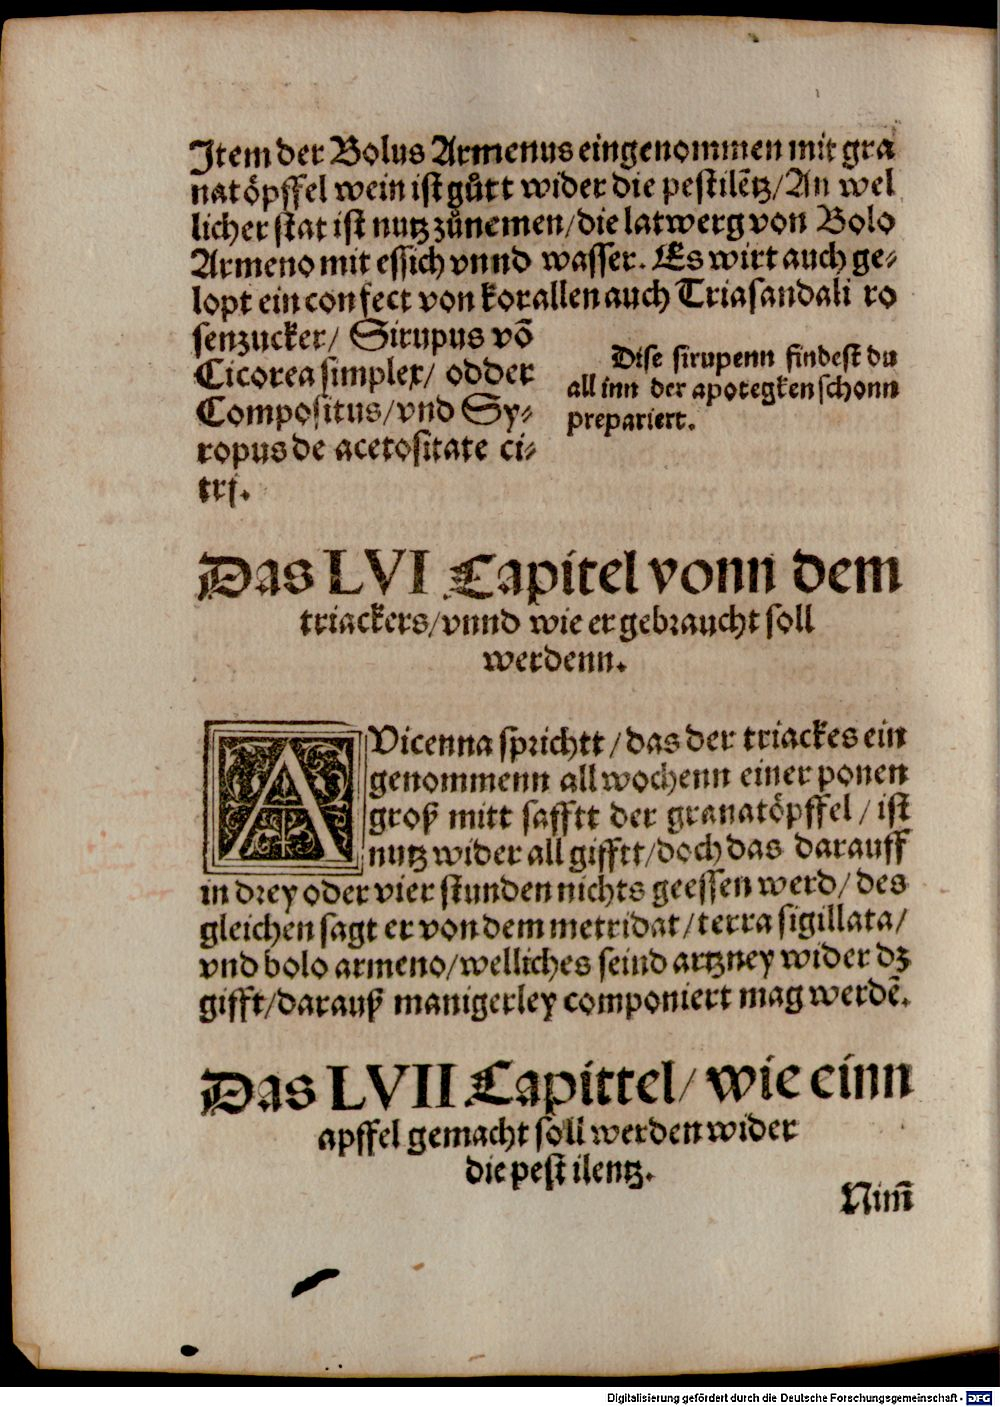 Item der Bolus Armenus eingenommen mit gra
natöpffel wein ist gůtt wider die pestilētz/An wel
licher stat ist nutz zůnemen/die latwerg von Bolo
Armeno mit essich vnnd wasser. Es wirt auch ge⸗
lopt ein confect von korallen auch Triasandali ro
senzucker/ Sirupus vō
Cicorea simplex/ odder
Compositus/vnd Sy⸗
ropus de acetositate ci⸗
trj.
Dise sirupenn findest du
all inn der apotegken schonn
prepariert.
Das LVI Capitel vonn dem
triackers/vnnd wie er gebraucht soll
werdenn.
AVicenna sprichtt/das der triackes ein
genommenn all wochenn einer ponen
groß mitt safftt der granatöpffel/ist
nutz wider all gifftt/doch das darauff
in drey oder vier stunden nichts geessen werd/des
gleichen sagt er von dem metridat/terra sigillata/
vnd bolo armeno/welliches seind artzney wider dz
gifft/darauß manigerley componiert mag werdē.
Das LVII Capittel/wie einn
apffel gemacht soll werden wider
die pestilentz.
Nim̄
Digitalisierung gefördert durch die Deutsche Forschungsgemeinschaft - DFG